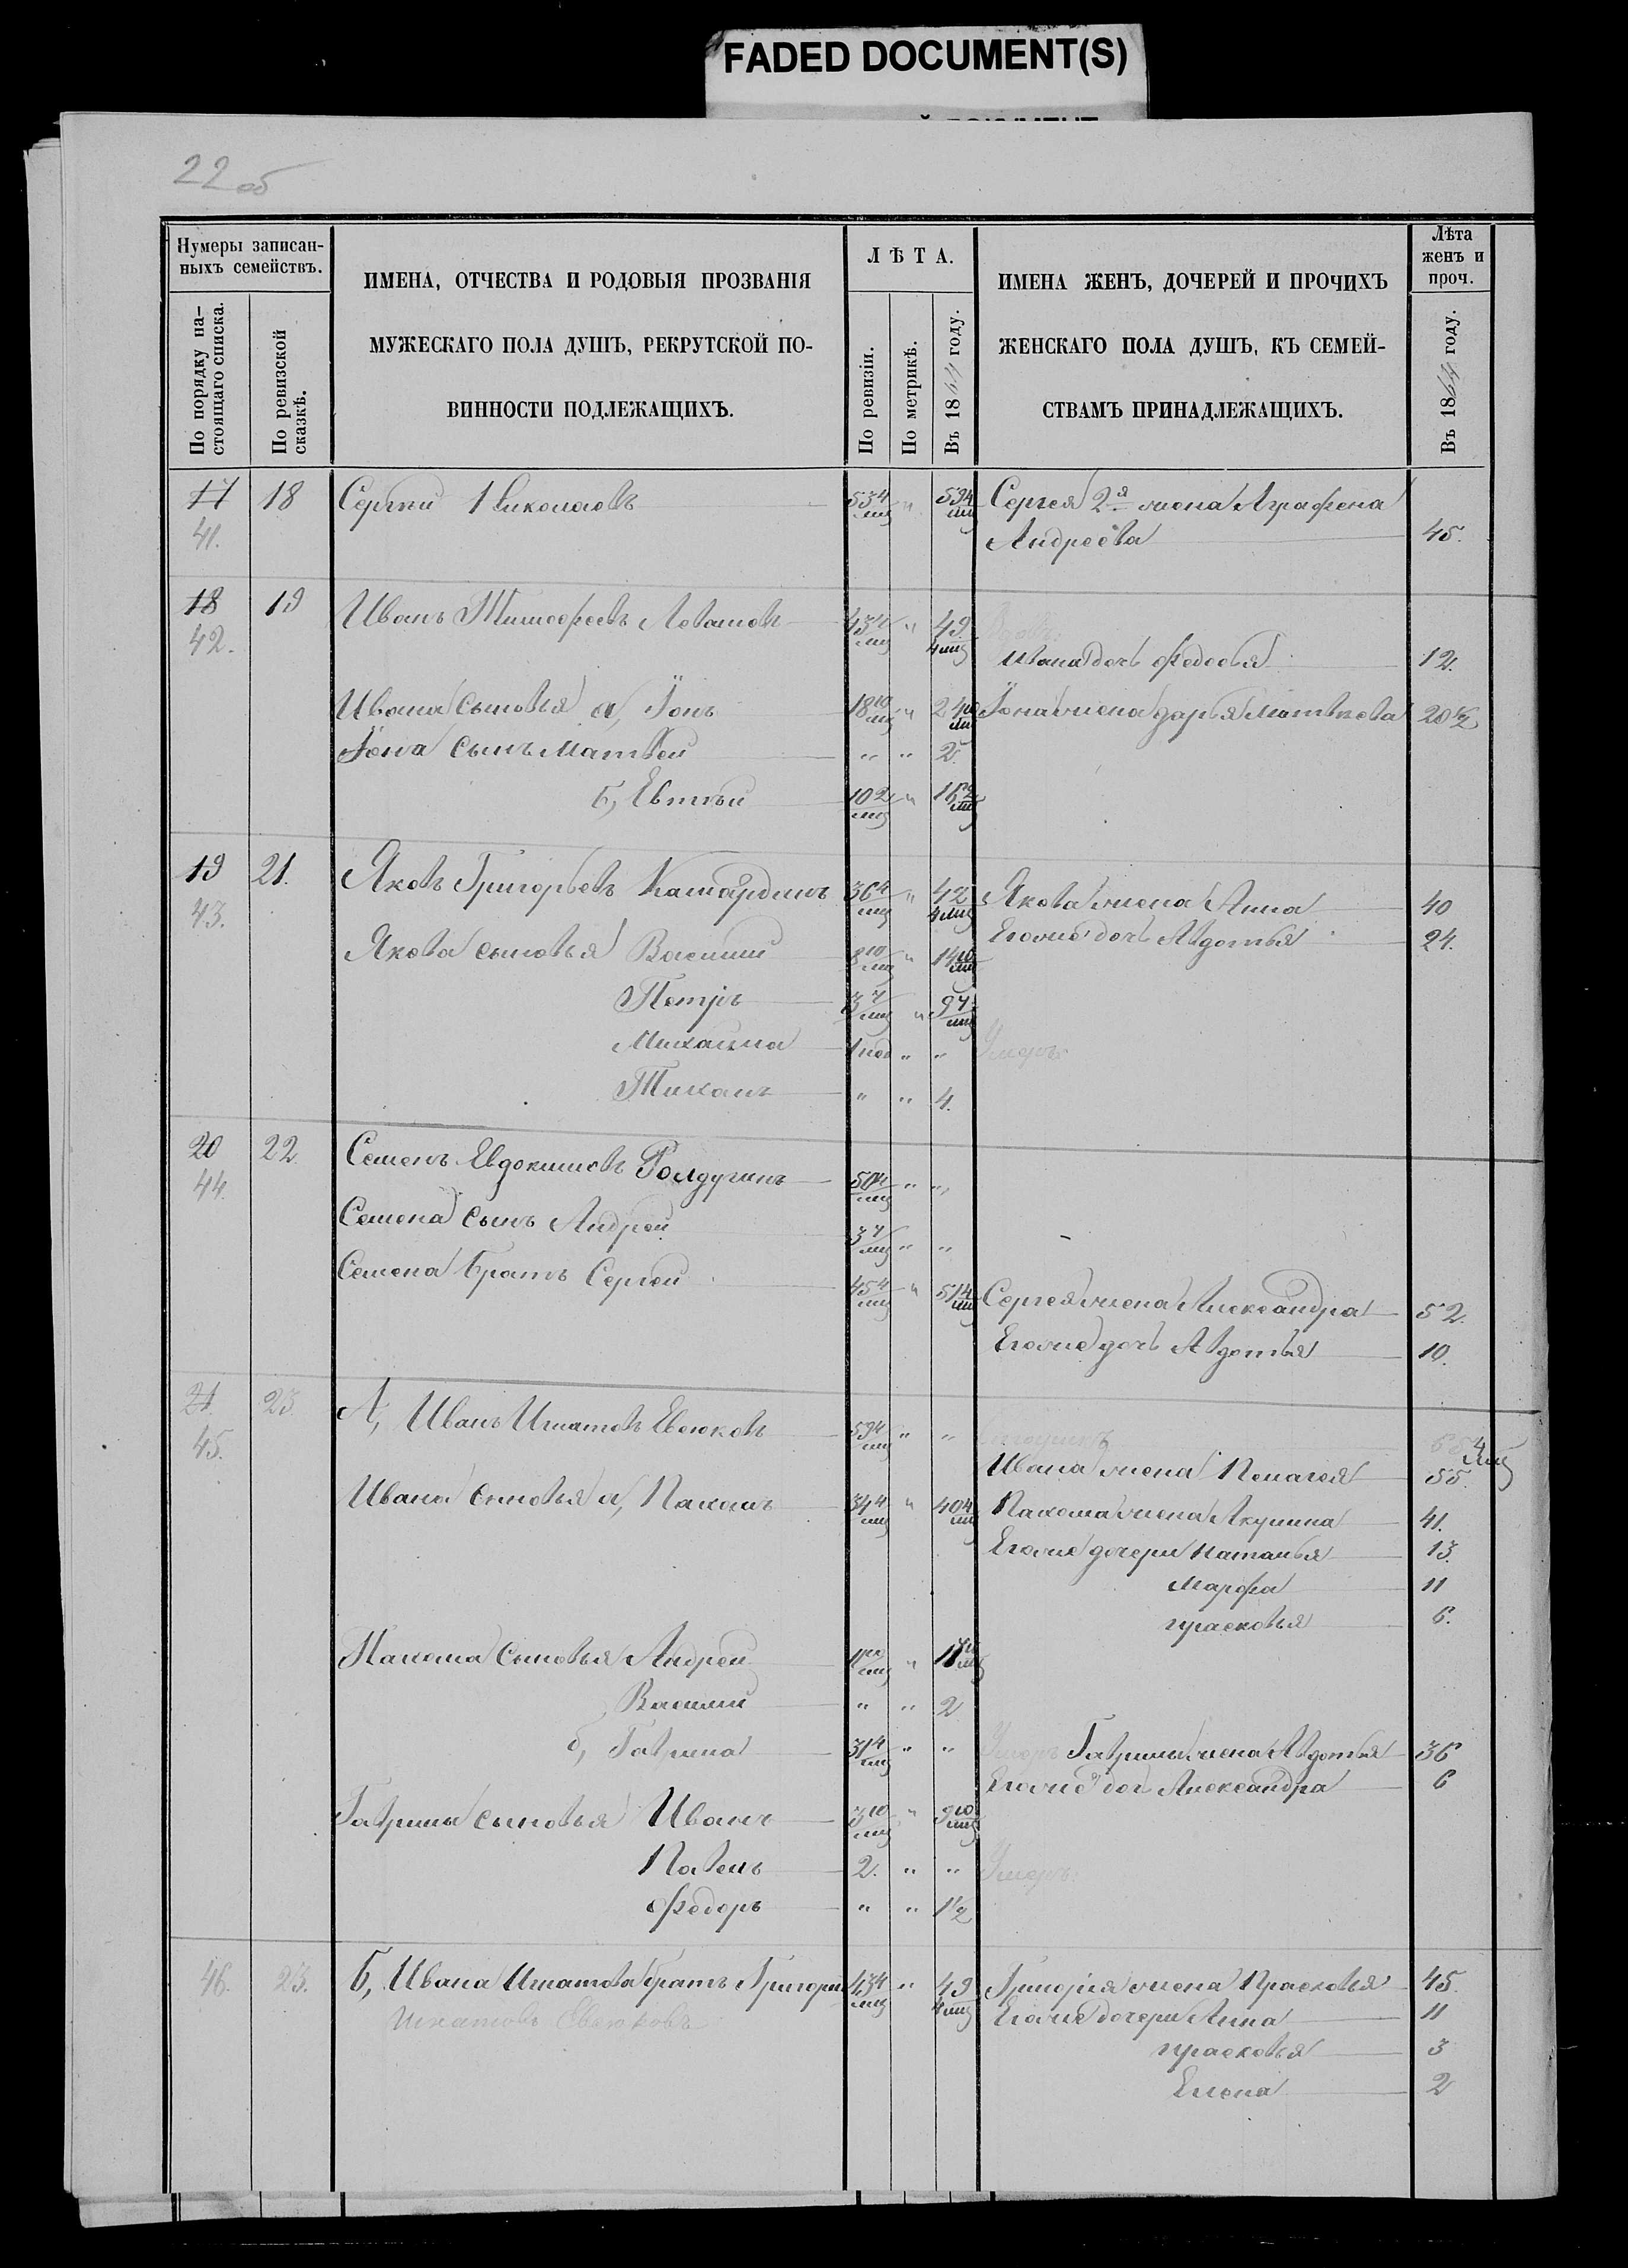 FADED DOCUMENT(S)
22 об
Нумеры записан-
ныхъ семействъ.
По порядку на-
стоящаго списка.
По ревизской
сказкѣ.
ИМЕНА, ОТЧЕСТВА И РОДОВЫЯ ПРОЗВАНІЯ
МУЖЕСКАГО ПОЛА ДУШЪ, РЕКРУТСКОЙ ПО-
ВИННОСТИ ПОДЛЕЖАЩИХЪ.
ЛѢТА.
По ревизіи.
По метрикѣ.
Въ 1864 году.
ИМЕНА ЖЕНЪ, ДОЧЕРЕЙ И ПРОЧИХЪ
ЖЕНСКАГО ПОЛА ДУШЪ, КЪ СЕМЕЙ-
СТВАМЪ ПРИНАДЛЕЖАЩИХЪ.
Лѣта
женъ и
проч.
Въ 1864 году.
17 18 Сергѣй Николаевъ 53 4/мц " 59 4/мц Сергея 2я жена Аграфена
41. Андреева 45.
18 19 Иванъ Тимофеевъ 43 4/мц " 49 4 мц
42. Ивана дочь Федосья 12.
Ивана сыновья а, Іонъ 18 10/мц " 24 10/мц Іона жена Дарья Матвеева 20 1/2
Іона сынъ Матвей " " 2.
б, Евтей 10 2/мц " 16 2/мц
19 21. Яковъ Григорьевъ 36 4/мц " 42 4 мц Якова жена Анна 40
43. Егоже дочь Авдотья 24.
Якова сыновья Василий 8 10/мц " 14 10/мц
Петръ 3 4/мц " 9 4/мц
Михайла 1 нед " " Умеръ
Тихонъ " " 4.
20 22 Семенъ Евдокимовъ Болдугинъ 50 4/мц " "
44.
Семена сынъ Андрей 3 4/мц " "
Семена братъ Сергей 45 4/мц " 51 4/мц Сергея жена Александра 52.
Егоже дочь Авдотья 10.
21 23 А, Иванъ Игнатовъ Евсюковъ 59 4/мц " "
45. Ивана жена Пелагея 55.
Ивана сыновья а, Пахомъ 34 4/мц " 40 4/мц Пахома жена Акулина 41.
Егоже дочери Наталья 13.
Марфа 11
Прасковья 6.
Пахома сыновья Андрей
Василий " " 2
б, Гаврила 31 4/мц " " Умеръ Гаврилы жена Авдотья 36
Егоже дочь Александра 6
Гаврилы сыновья Иванъ 3 10/мц " 9 10/мц
Павелъ 2. " " Умеръ
Федоръ " " 1 1/2
46. 23. Б, Ивана Игнатова братъ Григорий 43 4/мц " 49 4 мц Григория жена Прасковья 45.
Игнатовъ Евсюковъ Егоже дочери Анна 11
Прасковья 3
Елена 2